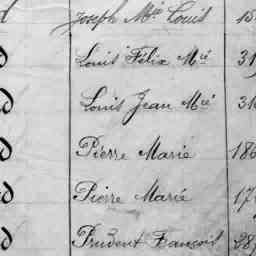 Joseph Mie Louis 15
Louis Félix Mié 31
Louis Jean Mié 31
Pierre Marie 186
Pierre Marie 17
Prudent François 28